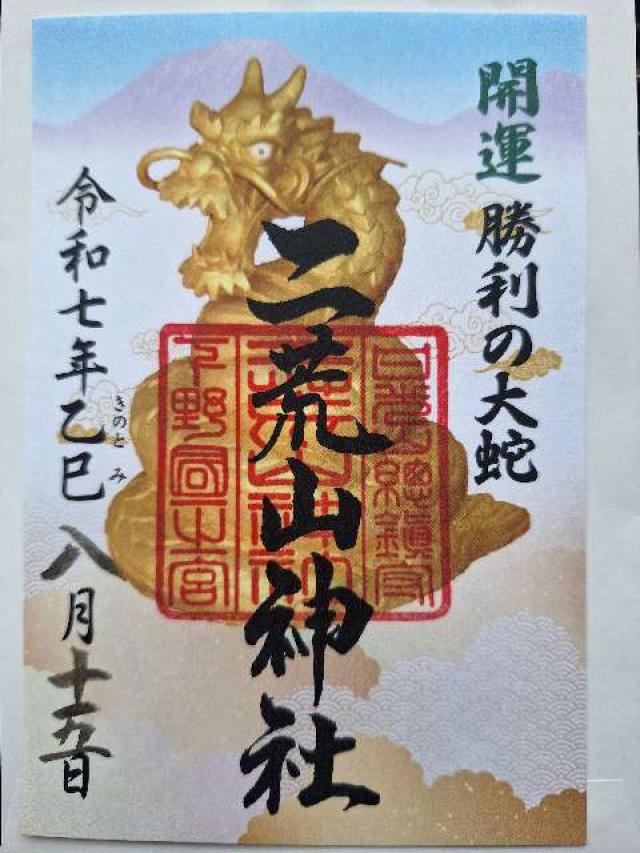 開運 勝利の大蛇
二荒山神社
日光山総鎮守
下野國一之宮
令和七年乙巳 八月十五日
きのと み